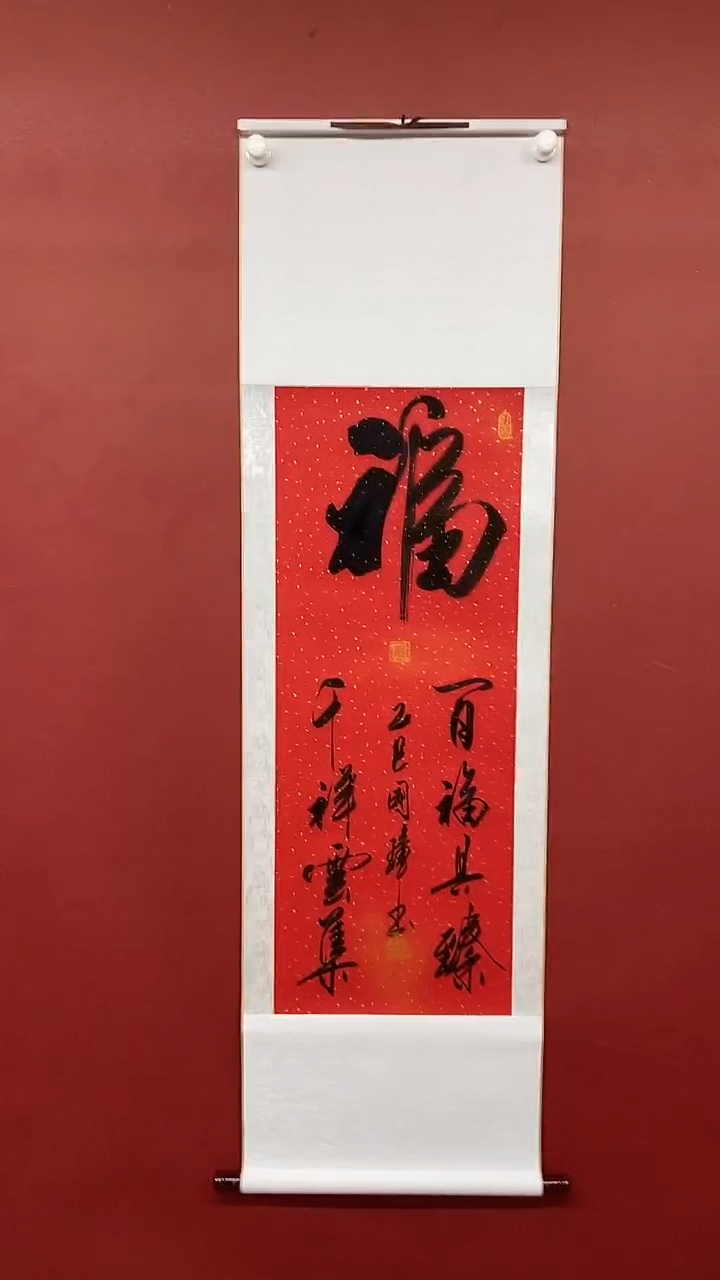 福
百福具臻
千祥雲集
乙巳國臻書